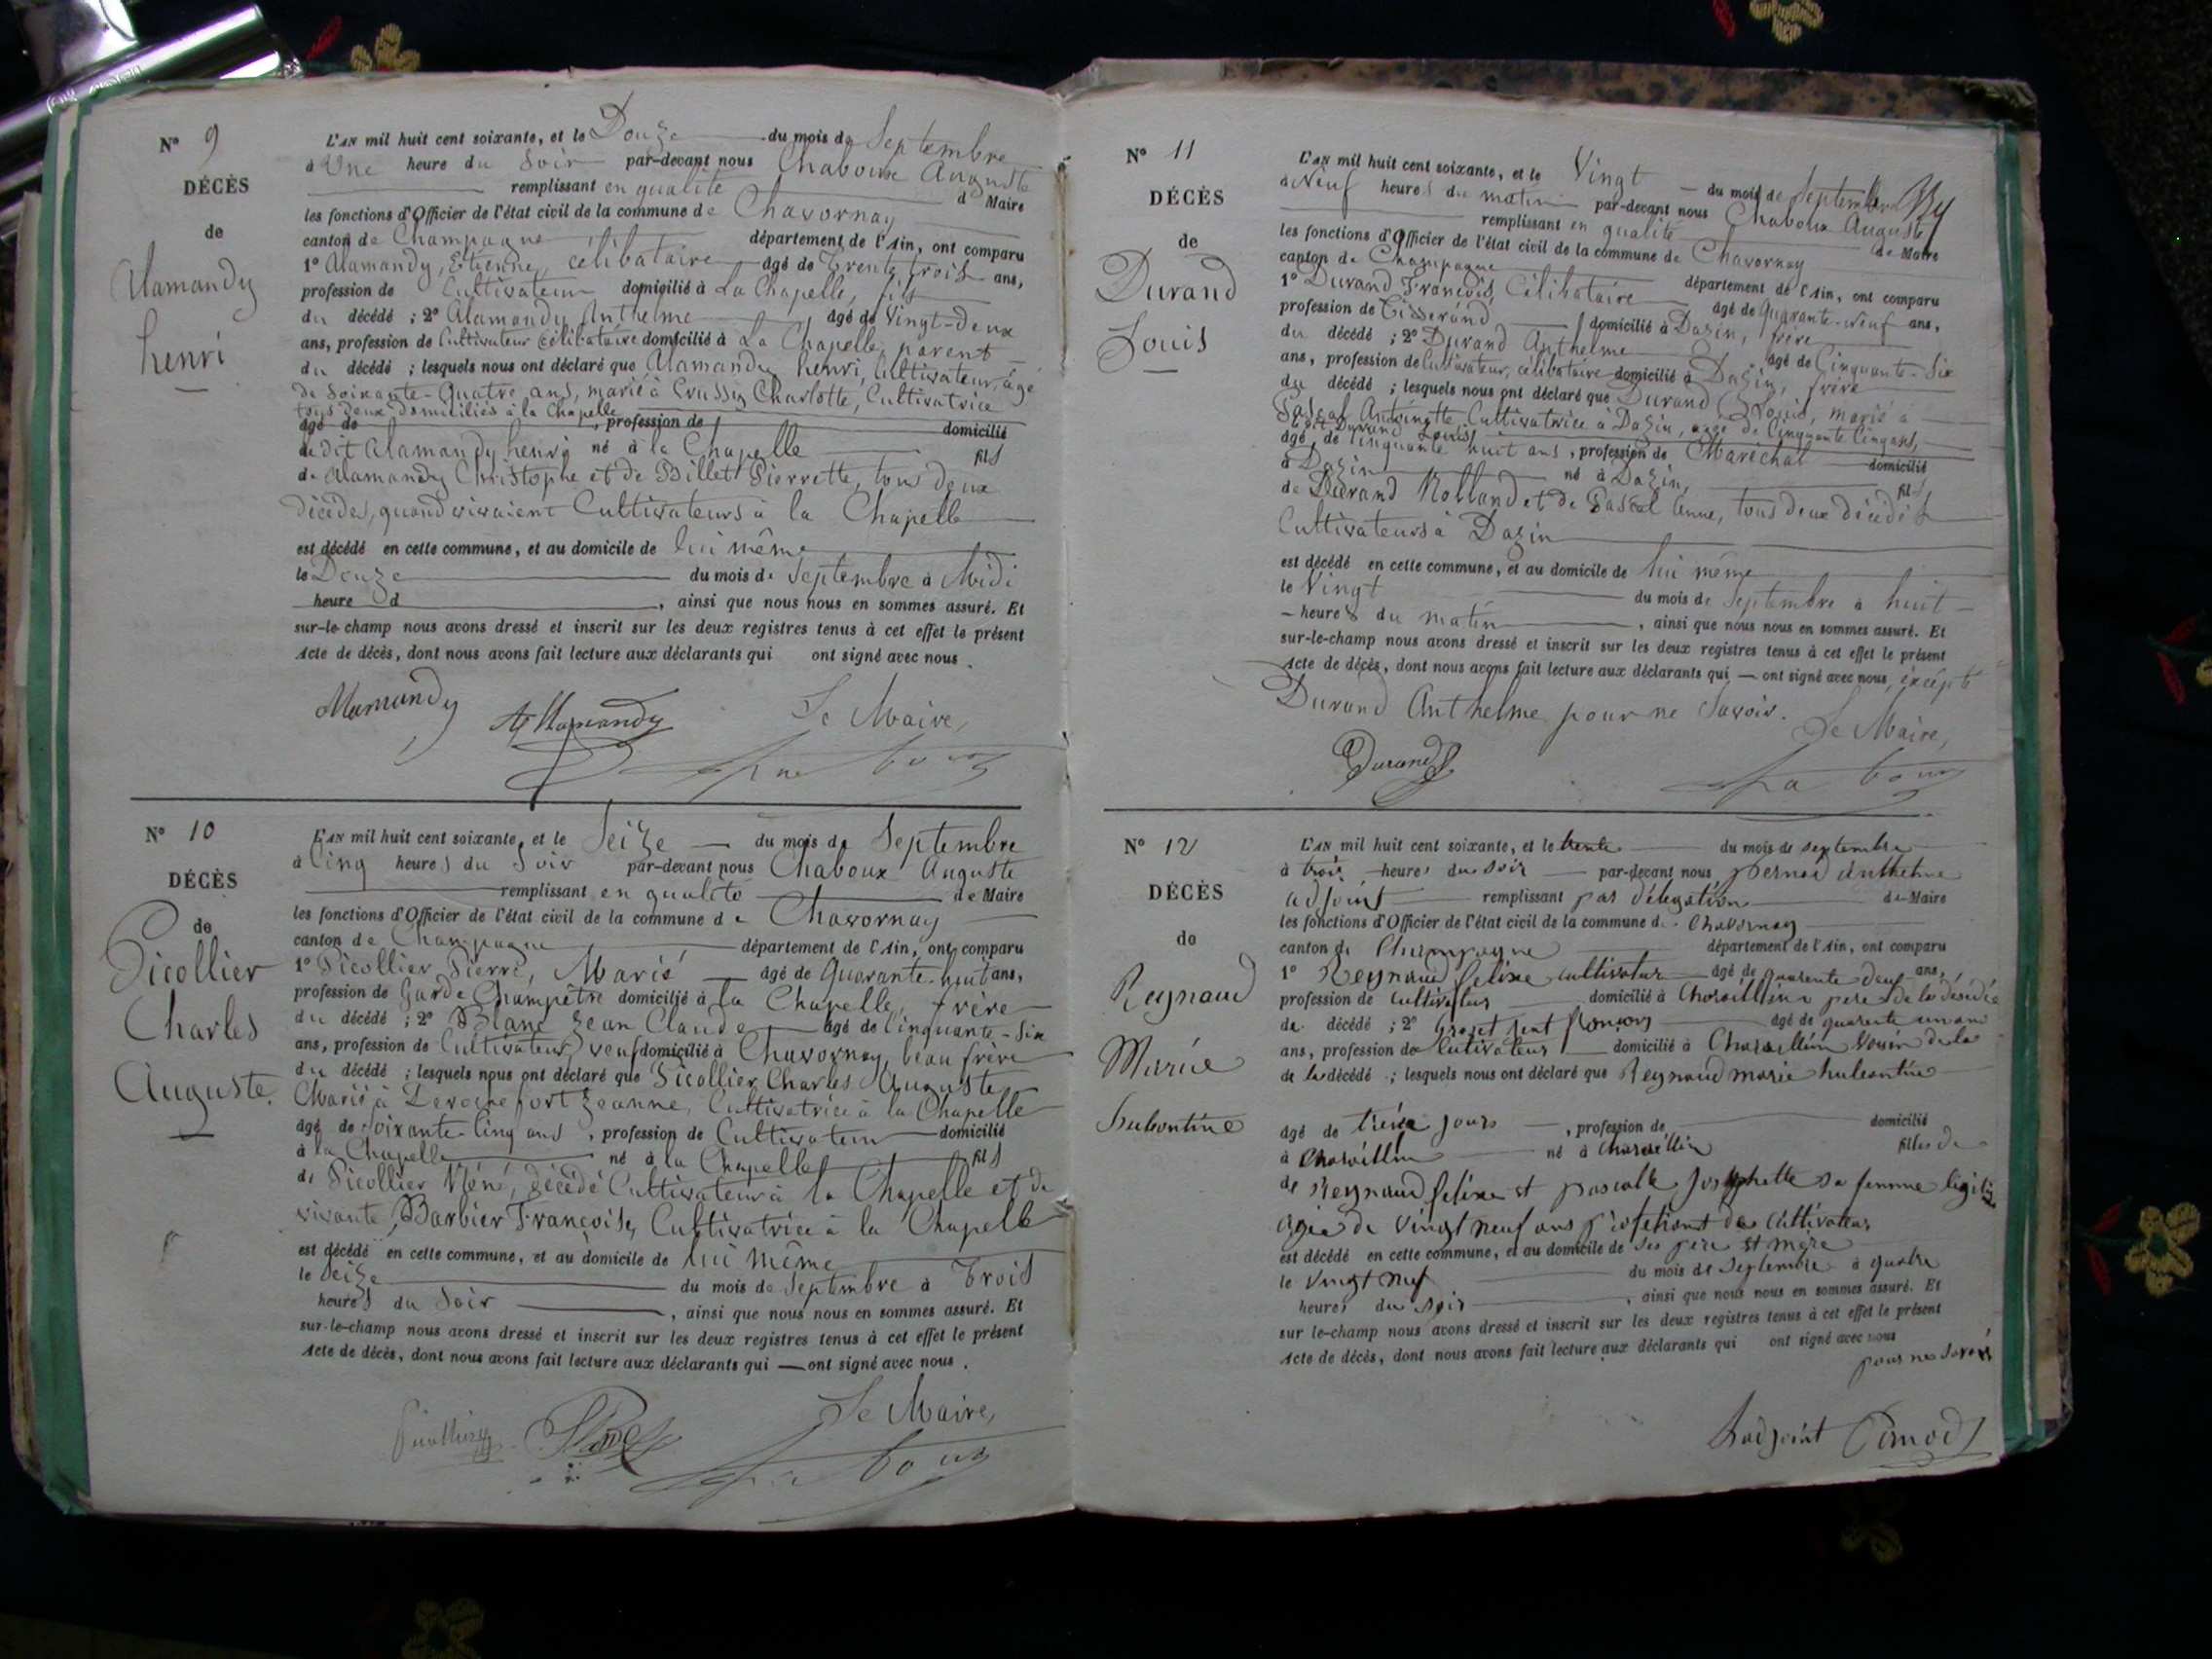 N° 9
DÉCÈS
de
Alamandy
henri
L'AN mil huit cent soixante, et le Douze du mois de Septembre
à Une heure du Soir par-devant nous Chaboux Auguste
remplissant en qualité d Maire
les fonctions d'Officier de l'état civil de la commune de Chavornay
canton de Champagne département de l'Ain, ont comparu
1° Alamandy, Etienne, célibataire âgé de Trente trois ans,
profession de Cultivateur domicilié à La Chapelle, fils
du décédé ; 2° Alamandy Anthelme âgé de Vingt-deux
ans, profession de Cultivateur célibataire domicilié à La Chapelle, parent
du décédé ; lesquels nous ont déclaré que Alamandy henri, Cultivateur, âgé
de Soixante-Quatre ans, marié à Crussy Charlotte, Cultivatrice
tous deux domiciliés à la Chapelle
âgé de , profession de domicilié
le dit Alamandy henri né à la Chapelle fils
de Alamandy Christophe et de Billet Pierrette, tous deux
décédés, quand vivaient Cultivateurs à la Chapelle
est décédé en cette commune, et au domicile de lui même
le Douze du mois de Septembre à Midi
heure d , ainsi que nous nous en sommes assuré. Et
sur-le-champ nous avons dressé et inscrit sur les deux registres tenus à cet effet le présent
Acte de décès, dont nous avons fait lecture aux déclarants qui ont signé avec nous.
Alamandy Alamandy Le Maire,
Chaboux
N° 10
DÉCÈS
de
Picollier
Charles
Auguste.
L'AN mil huit cent soixante, et le Seize du mois de Septembre
à Cinq heures du Soir par-devant nous Chaboux Auguste
remplissant en qualité de Maire
les fonctions d'Officier de l'état civil de la commune de Chavornay
canton de Champagne département de l'Ain, ont comparu
1° Picollier Pierre, Marié âgé de Quarante-huit ans,
profession de Garde Champêtre domicilié à la Chapelle, frère
du décédé ; 2° Blanc Jean Claude âgé de Cinquante-Six
ans, profession de Cultivateur, veuf domicilié à Chavornay, beau frère
du décédé ; lesquels nous ont déclaré que Picollier, Charles Auguste
Marié à Jeanne, Cultivatrice à la Chapelle
âgé de Soixante-Cinq ans, profession de Cultivateur domicilié
à la Chapelle né à la Chapelle fils
de Picollier Réné, décédé Cultivateur à la Chapelle et de
vivante, Barbier Françoise, Cultivatrice à la Chapelle
est décédé en cette commune, et au domicile de lui même
le Seize du mois de Septembre à Trois
heures du Soir , ainsi que nous nous en sommes assuré. Et
sur-le-champ nous avons dressé et inscrit sur les deux registres tenus à cet effet le présent
Acte de décès, dont nous avons fait lecture aux déclarants qui — ont signé avec nous.
Picollier Blanc Le Maire,
Chaboux
N° 11
DÉCÈS
de
Durand
Louis
L'AN mil huit cent soixante, et le Vingt du mois de Septembre
à Neuf heures du matin par-devant nous Chaboux Auguste
remplissant en qualité de Maire
les fonctions d'Officier de l'état civil de la commune de Chavornay
canton de Champagne département de l'Ain, ont comparu
1° Durand François, Célibataire âgé de Quarante-neuf ans,
profession de Tisserand domicilié à Dazin, frère
du décédé ; 2° Durand Anthelme âgé de Cinquante-Six
ans, profession de Cultivateur, célibataire domicilié à Dazin, frère
du décédé ; lesquels nous ont déclaré que Durand Louis, marié a
Pascal Antoinette Cultivatrice à Dazin, agée de Cinquante Cinq ans,
le dit Durand Louis,
âgé de Cinquante huit ans, profession de Maréchal domicilié
à Dazin né à Dazin, fils
de Durand Rolland et de Pascal Anne, tous deux décédés
Cultivateurs à Dazin
est décédé en cette commune, et au domicile de lui même
le Vingt du mois de Septembre à huit
heures du matin , ainsi que nous nous en sommes assuré. Et
sur-le-champ nous avons dressé et inscrit sur les deux registres tenus à cet effet le présent
Acte de décès, dont nous avons fait lecture aux déclarants qui — ont signé avec nous, excepté
Durand Anthelme pour ne Savoir. Le Maire,
Durand Chaboux
N° 12
DÉCÈS
de
Reynaud
Marie
L'AN mil huit cent soixante, et le trente du mois de septembre
à trois heures du soir par-devant nous pernod Anthelme
adjoint remplissant par délégation de Maire
les fonctions d'Officier de l'état civil de la commune d. Chavornay
canton de Champagne département de l'Ain, ont comparu
1° Reynaud felixe cultivateur âgé de quarente deux ans,
profession de Cultivateur domicilié à pere de la désédée
de décédé ; 2° âgé de quarente un ans
ans, profession de Cutivateur domicilié à voisin de la
de la décédé ; lesquels nous ont déclaré que Reynaud marie
âgé de treize jours , profession de domicilié
à né à filles de
de Reynaud felixe et pascalle josephette sa femme
agée de vingt neuf ans de cultivateur
est décédé en cette commune, et au domicile de ses pere et mère
le vingt neuf du mois de septembre à quatre
heures du soir , ainsi que nous nous en sommes assuré. Et
sur le-champ nous avons dressé et inscrit sur les deux registres tenus à cet effet le présent
Acte de décès, dont nous avons fait lecture aux déclarants qui ont signé avec nous
pour ne savoir
Ladjoint